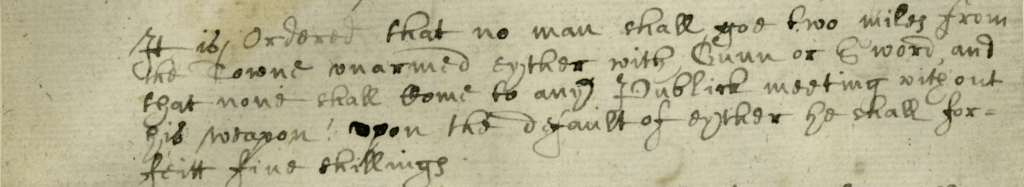 It is Ordered that no man shall goe two miles from
the Towne vnarmed eyther with Gunn or Sword, and
that none shall Come to any Publick meeting without
his weapon: vpon the default of eyther he shall for=
feitt fiue shillings